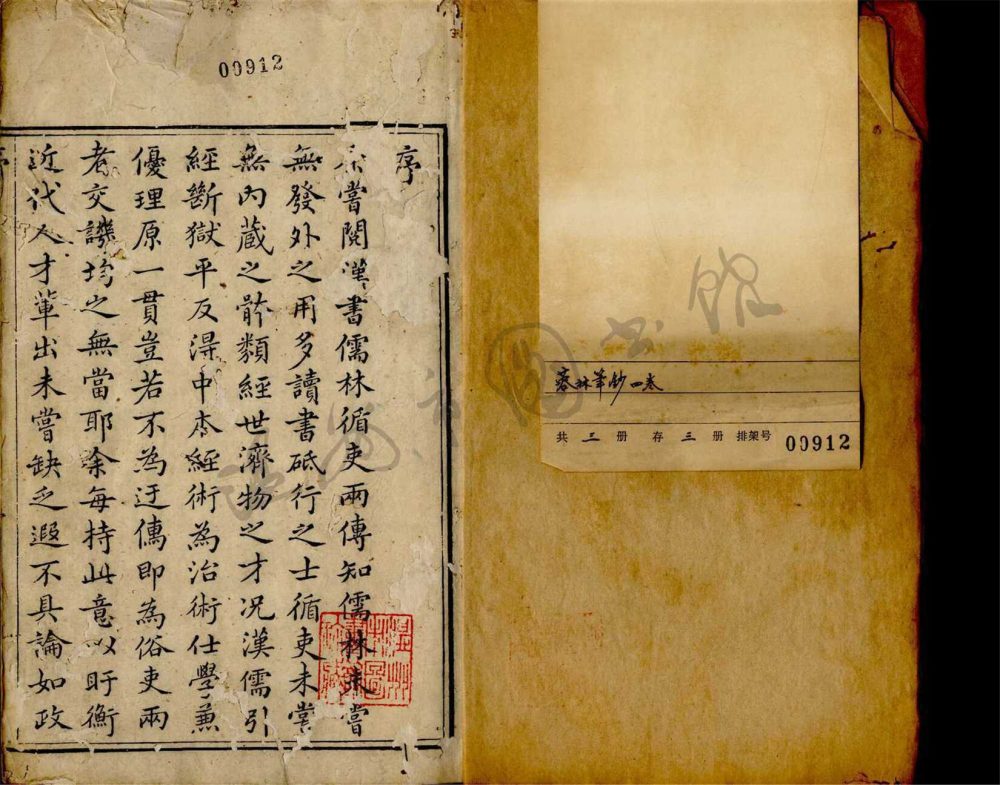 00912
序
余嘗閱漢書儒林循吏兩傳知儒林未嘗
無發外之用多讀書砥行之士循吏未嘗
無內蔵之骵類經世濟物之才况漢儒引
經斷獄平反淂中本經術為治術仕學兼
優理原一貫豈若不為迂儁即為俗吏兩
者交譏均之無當耶余每持此意以盱衡
近代人才輩出未嘗缺乏遐不具論如政
蓉林筆鈔四卷
共 三 册 存 三 册 排架号 00912